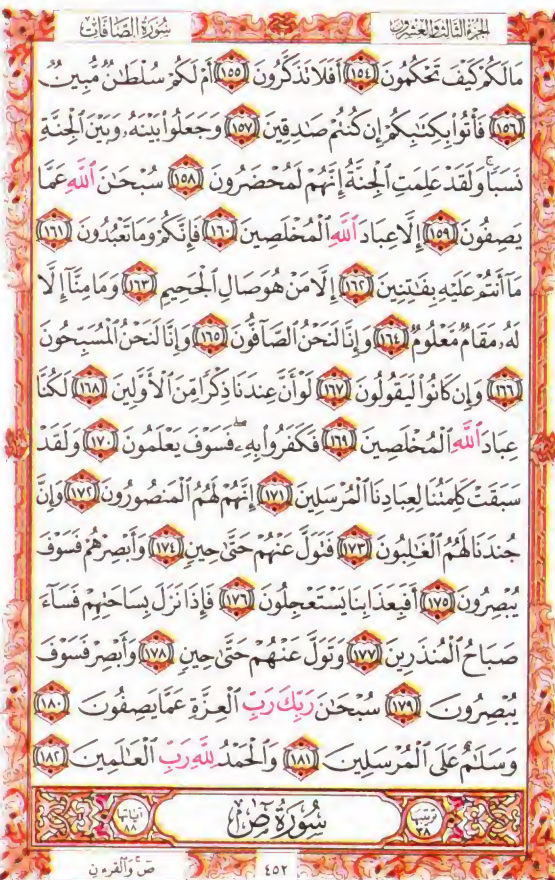 الجزء الثالث والعشرون سورة الصافات
مَا لَكُمْ كَيْفَ تَحْكُمُونَ ١٥٤ أَفَلَا تَذَكَّرُونَ ١٥٥ أَمْ لَكُمْ سُلْطَٰنٌ مُّبِينٌ
١٥٦ فَأْتُوا۟ بِكِتَٰبِكُمْ إِن كُنتُمْ صَٰدِقِينَ ١٥٧ وَجَعَلُوا۟ بَيْنَهُۥ وَبَيْنَ ٱلْجِنَّةِ
نَسَبًا ۚ وَلَقَدْ عَلِمَتِ ٱلْجِنَّةُ إِنَّهُمْ لَمُحْضَرُونَ ١٥٨ سُبْحَٰنَ ٱللَّهِ عَمَّا
يَصِفُونَ ١٥٩ إِلَّا عِبَادَ ٱللَّهِ ٱلْمُخْلَصِينَ ١٦٠ فَإِنَّكُمْ وَمَا تَعْبُدُونَ ١٦١
مَآ أَنتُمْ عَلَيْهِ بِفَٰتِنِينَ ١٦٢ إِلَّا مَنْ هُوَ صَالِ ٱلْجَحِيمِ ١٦٣ وَمَا مِنَّآ إِلَّا
لَهُۥ مَقَامٌ مَّعْلُومٌ ١٦٤ وَإِنَّا لَنَحْنُ ٱلصَّآفُّونَ ١٦٥ وَإِنَّا لَنَحْنُ ٱلْمُسَبِّحُونَ
١٦٦ وَإِن كَانُوا۟ لَيَقُولُونَ ١٦٧ لَوْ أَنَّ عِندَنَا ذِكْرًا مِّنَ ٱلْأَوَّلِينَ ١٦٨ لَكُنَّا
عِبَادَ ٱللَّهِ ٱلْمُخْلَصِينَ ١٦٩ فَكَفَرُوا۟ بِهِۦ ۖ فَسَوْفَ يَعْلَمُونَ ١٧٠ وَلَقَدْ
سَبَقَتْ كَلِمَتُنَا لِعِبَادِنَا ٱلْمُرْسَلِينَ ١٧١ إِنَّهُمْ لَهُمُ ٱلْمَنصُورُونَ ١٧٢ وَإِنَّ
جُندَنَا لَهُمُ ٱلْغَٰلِبُونَ ١٧٣ فَتَوَلَّ عَنْهُمْ حَتَّىٰ حِينٍ ١٧٤ وَأَبْصِرْهُمْ فَسَوْفَ
يُبْصِرُونَ ١٧٥ أَفَبِعَذَابِنَا يَسْتَعْجِلُونَ ١٧٦ فَإِذَا نَزَلَ بِسَاحَتِهِمْ فَسَآءَ
صَبَاحُ ٱلْمُنذَرِينَ ١٧٧ وَتَوَلَّ عَنْهُمْ حَتَّىٰ حِينٍ ١٧٨ وَأَبْصِرْ فَسَوْفَ
يُبْصِرُونَ ١٧٩ سُبْحَٰنَ رَبِّكَ رَبِّ ٱلْعِزَّةِ عَمَّا يَصِفُونَ ١٨٠
وَسَلَٰمٌ عَلَى ٱلْمُرْسَلِينَ ١٨١ وَٱلْحَمْدُ لِلَّهِ رَبِّ ٱلْعَٰلَمِينَ ١٨٢
ترتيبها ٣٨ سُورَةُ صٓ آياتها ٨٨
٤٥٢ صٓ ۚ وَالقرءن